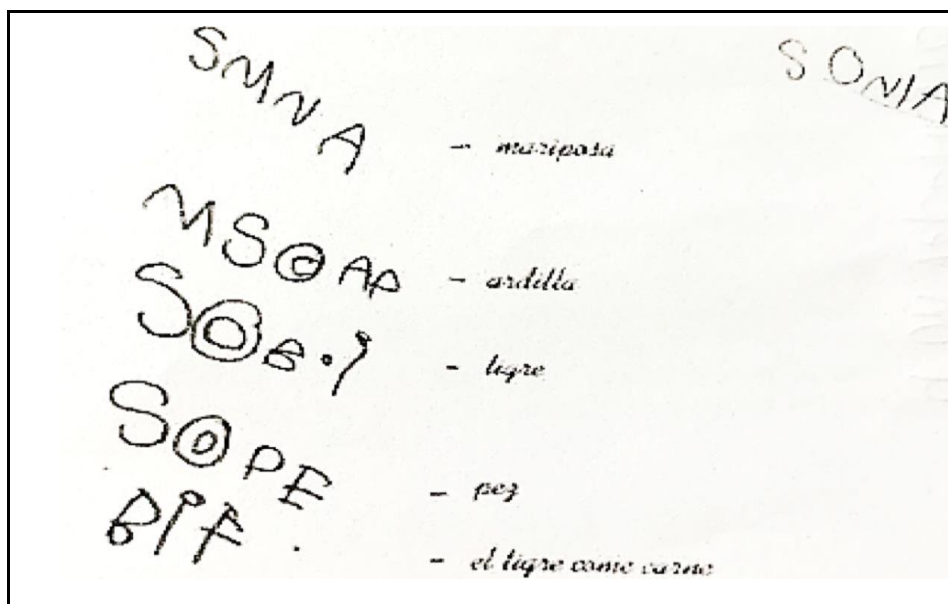 SONIA
SMNA - mariposa
MSOAP - ardilla
SOB.i - tigre
SOPE - pez
BiF - el tigre come carne